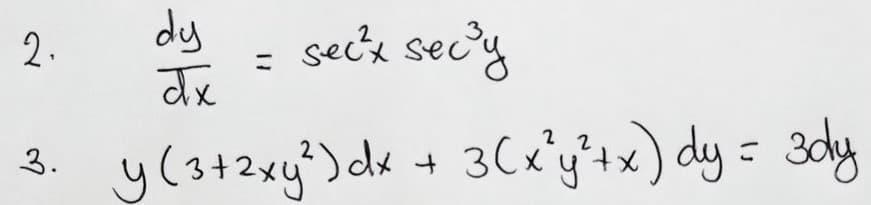 2. dy/dx = sec²x sec³y
3. y(3+2xy²)dx + 3(x²y²+x)dy = 3dy